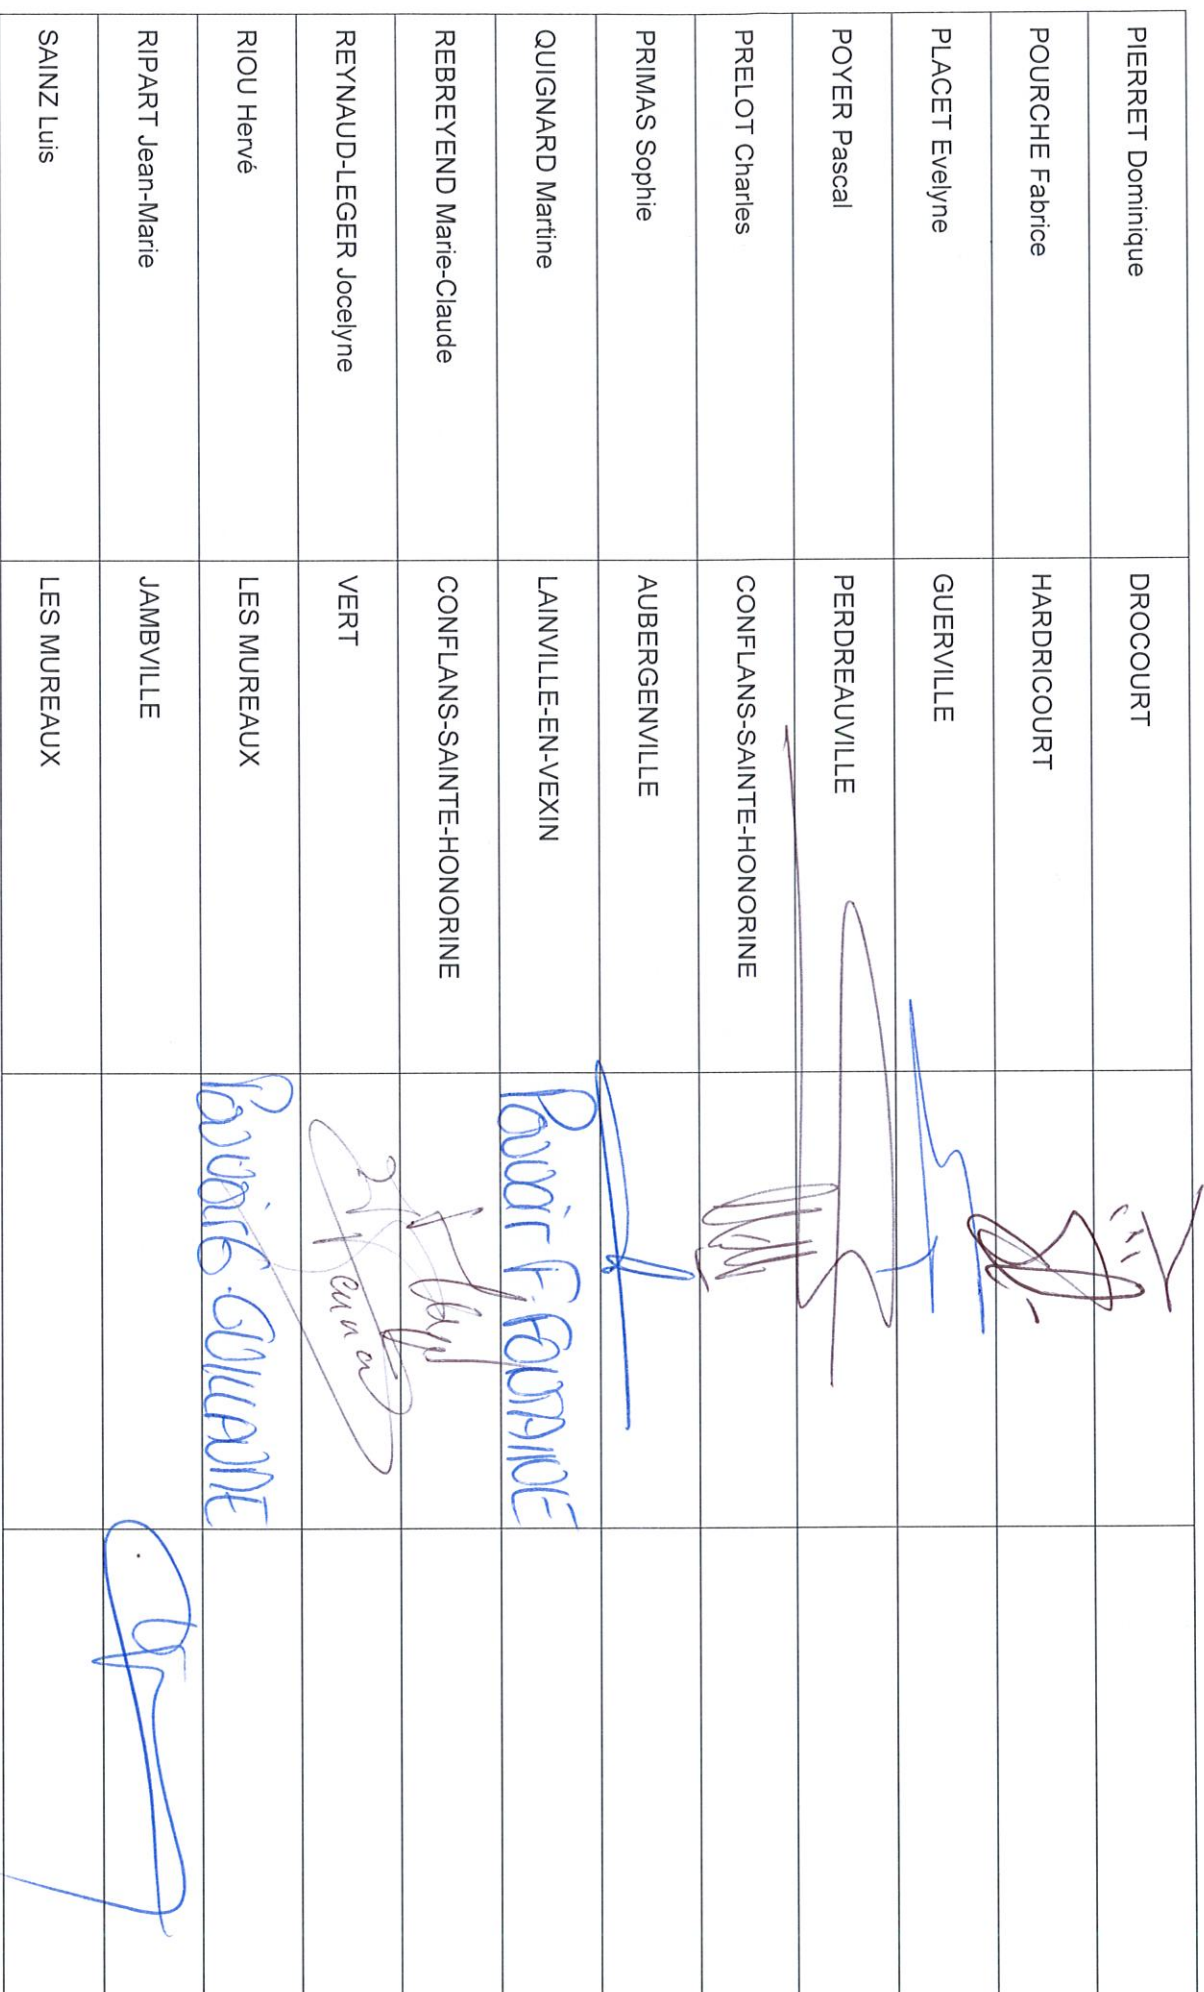 PIERRET Dominique DROCOURT
POURCHE Fabrice HARDRICOURT
PLACET Evelyne GUERVILLE
POYER Pascal PERDREAUVILLE
PRELOT Charles CONFLANS-SAINTE-HONORINE
PRIMAS Sophie AUBERGENVILLE
QUIGNARD Martine LAINVILLE-EN-VEXIN Pouvoir F. FOURNIDE
REBREYEND Marie-Claude CONFLANS-SAINTE-HONORINE
REYNAUD-LEGER Jocelyne VERT
RIOU Hervé LES MUREAUX Pouvoir G. GUILLAUME
RIPART Jean-Marie JAMBVILLE
SAINZ Luis LES MUREAUX